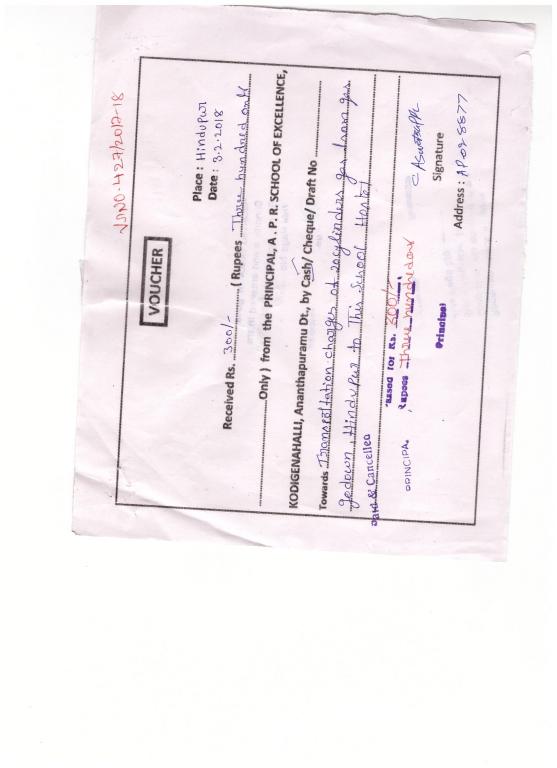 V.NO. 427/2017-18
VOUCHER
Place : Hindupur
Date : 3.2.2018
Received Rs. 300/- ( Rupees Three hundred only
Only ) from the PRINCIPAL, A . P. R. SCHOOL OF EXCELLENCE,
KODIGENAHALLI, Ananthapuramu Dt., by Cash/ Cheque/ Draft No
Towards Transportation charges of 20cylinders gas from gas
godown, Hindupur to This School Hostel
Paid & Cancelled
Passed for Rs. 300/-
PRINCIPAL Rupees Three hundred only
Principal
Signature
Address : AP02 8877